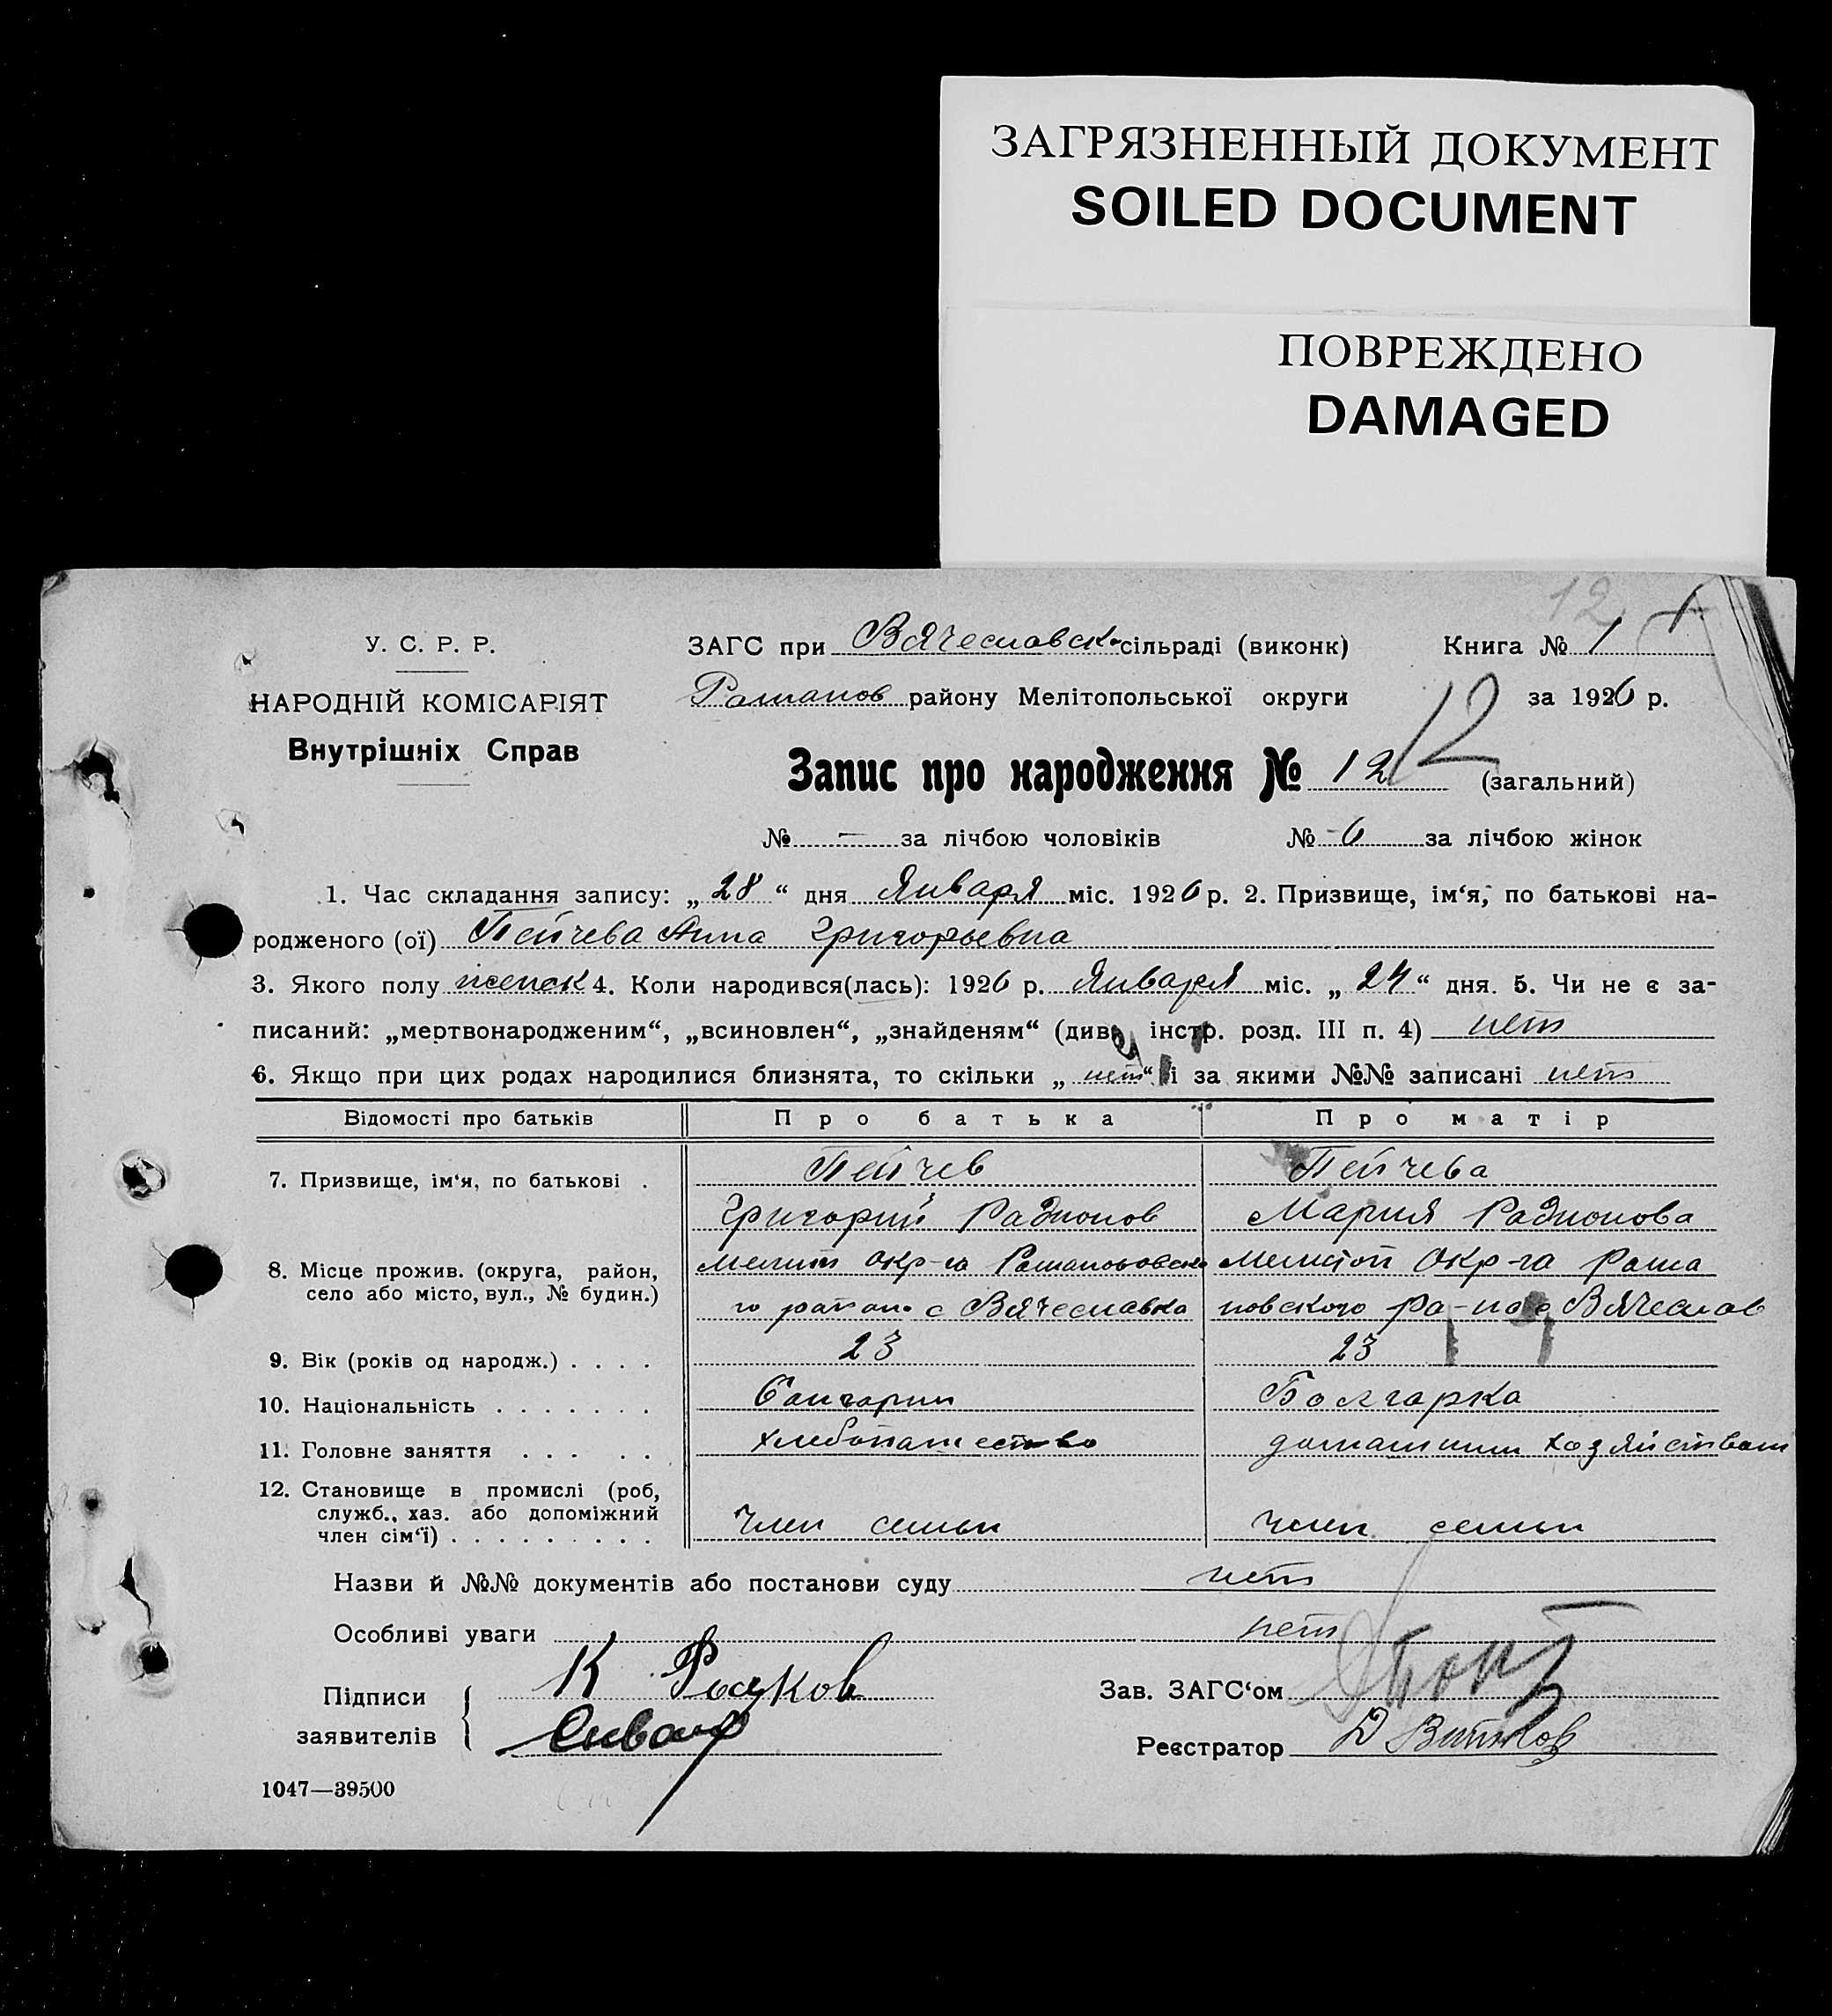 ЗАГРЯЗНЕННЫЙ ДОКУМЕНТ
SOILED DOCUMENT
ПОВРЕЖДЕНО
DAMAGED
12
У. С. Р. Р.
НАРОДНІЙ КОМІСАРІЯТ
Внутрішніх Справ
ЗАГС при Вячеславск. сільраді (виконк) Книга № 1
Романов району Мелітопольської округи за 1926 р.
Запис про народження № 12 12 (загальний)
№ — за лічбою чоловіків № 6 за лічбою жінок
1. Час складання запису: „28“ дня Января міс. 1926 р. 2. Призвище, ім‘я, по батькові на-
родженого (ої) Пейчева Анна Григорьевна
3. Якого полу женск 4. Коли народився(лась): 1926 р. Января міс. „24“ дня. 5. Чи не є за-
писаний: „мертвонародженим“, „всиновлен“, „знайденям“ (див. інстр. розд. III п. 4) нет
6. Якщо при цих родах народилися близнята, то скільки „нет“ і за якими №№ записані нет
Відомості про батьків Про батька Про матір
7. Призвище, ім‘я, по батькові . Пейчев Пейчева
Григорий Радионов Мария Радионова
8. Місце прожив. (округа, район, Мелит окр-га Мелитоп Окр-га Рома
село або місто, вул., № будин.) го с Вячеславка новского ра-на с Вячеслав
9. Вік (років од народж.) . . . . 23 23
10. Національність . . . . . . . Болгарин Болгарка
11. Головне заняття . . . . . хлебопашество домашним хозяйством
12. Становище в промислі (роб,
служб., хаз. або допоміжний
член сім‘ї) . . . . . . . . . Член семьи член семьи
Назви й №№ документів або постанови суду нет
Особливі уваги нет
Підписи К Зав. ЗАГС‘ом
заявителів Реєстратор Д
1047—39500